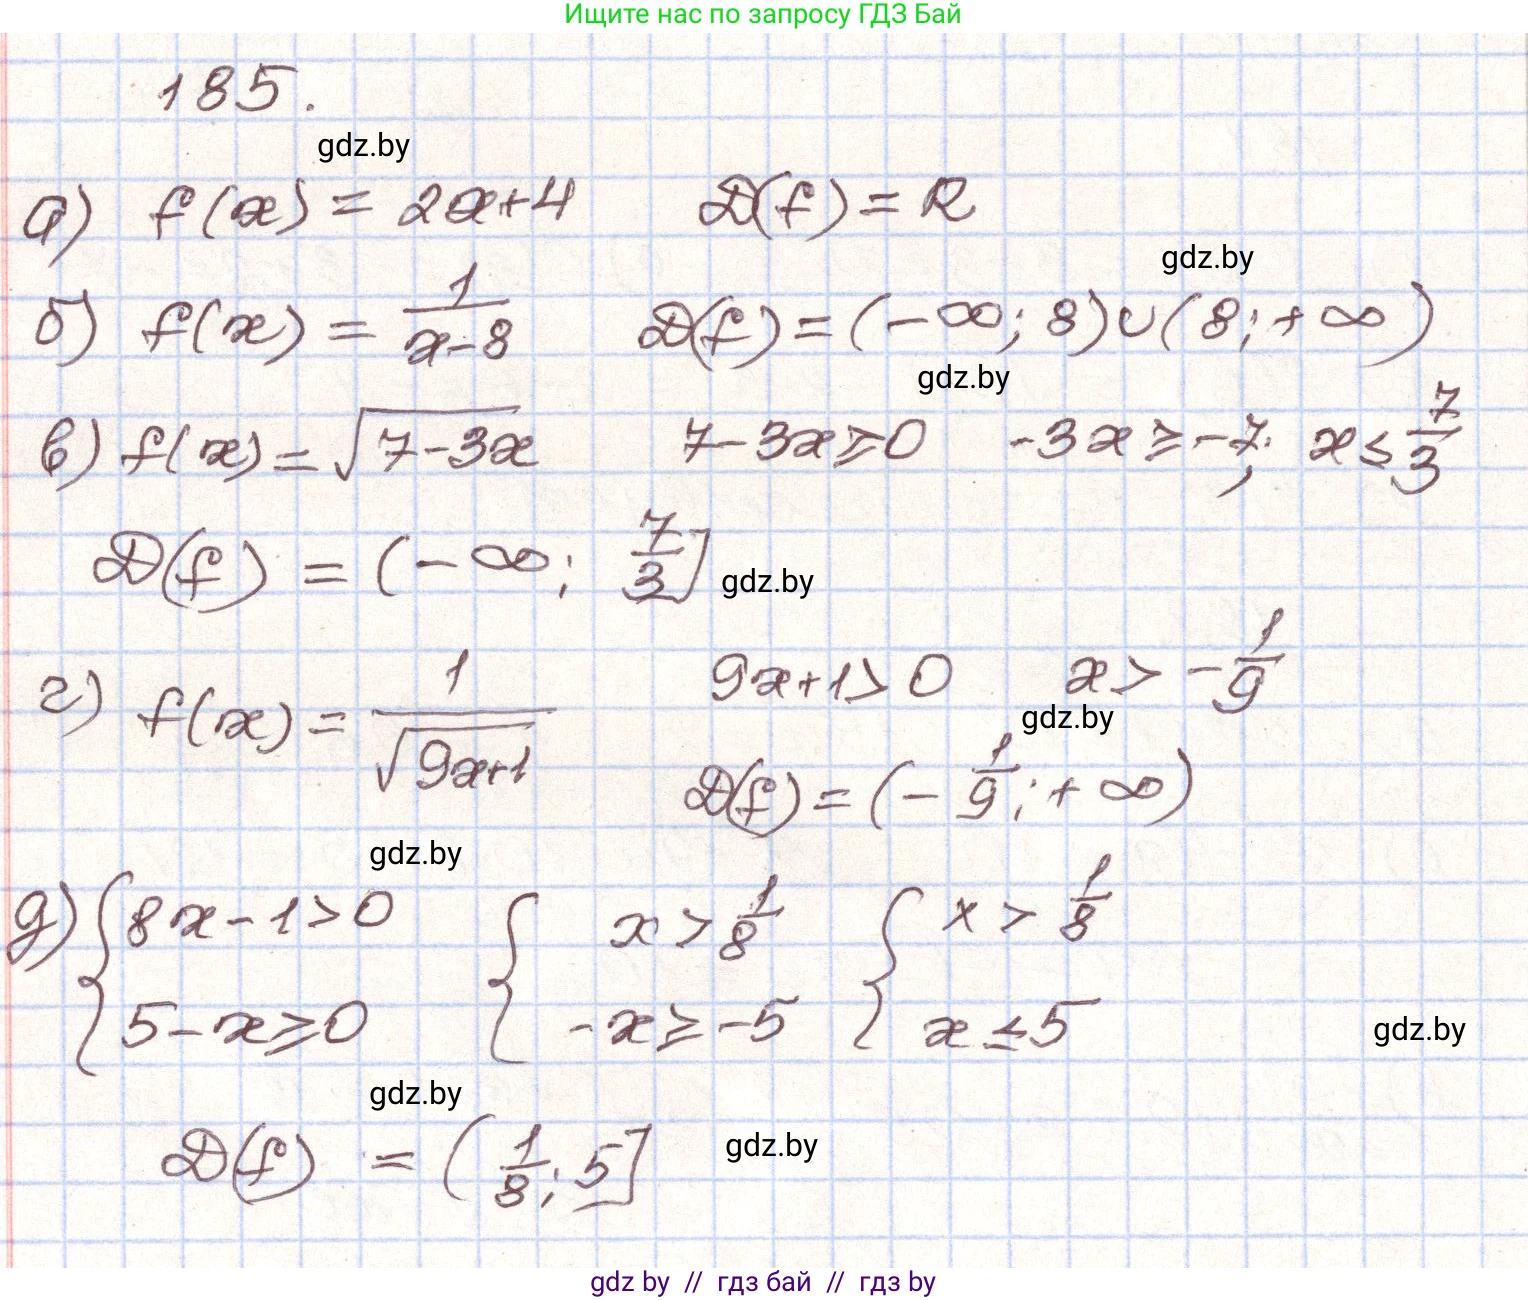 Ищите нас по запросу ГДЗ Бай
185.
gdz.by
а) f(x) = 2x+4 D(f) = R
gdz.by
б) f(x) = 1/(x-8) D(f) = (-∞; 8)∪(8; +∞)
gdz.by
в) f(x) = √(7-3x) 7-3x≥0 -3x≥-7; x≤7/3
D(f) = (-∞; 7/3]
gdz.by
г) f(x) = 1/√(9x+1) 9x+1>0 x>-1/9
gdz.by
D(f) = (-1/9; +∞)
gdz.by
д) { 8x-1>0 { x>1/8 { x>1/8
5-x≥0 -x≥-5 x≤5
gdz.by
gdz.by
D(f) = (1/8; 5]
gdz.by
gdz by // гдз бай // гдз by